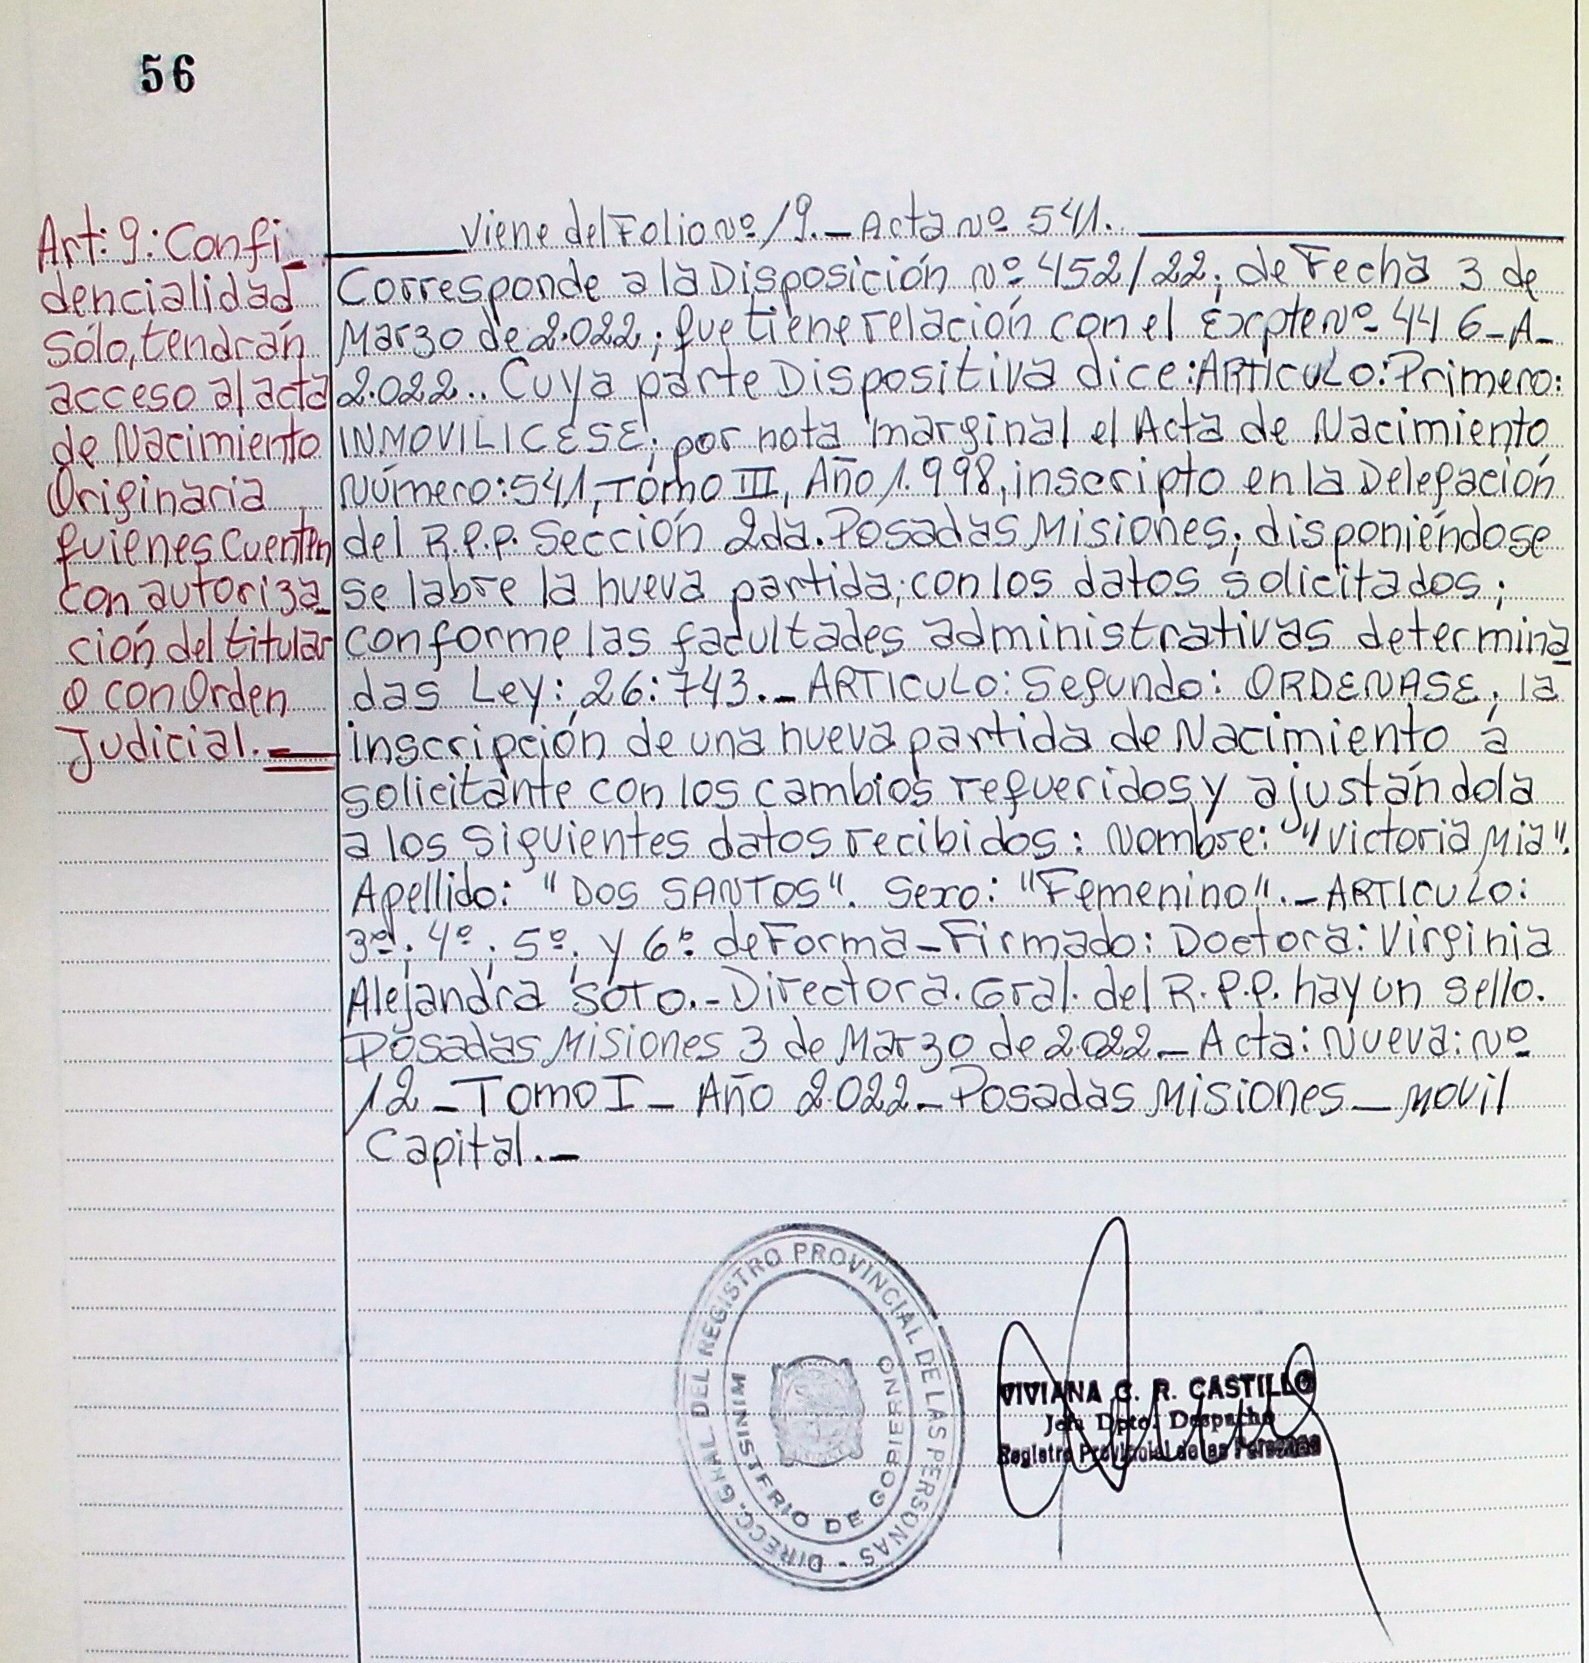 56
Art: 9: Confi_
dencialidad
Sólo, tendrán
acceso al acta
de Nacimiento
Originaria
quienes cuenten
con autoriza_
ción del titular
o con Orden
Judicial._
Viene del Folio Nº 19._ Acta Nº 541.
Corresponde a la Disposición Nº 452/22; de Fecha 3 de
Marzo de 2.022; que tiene relación con el Exrpte Nº 446_A_
2.022.. Cuya parte Dispositiva dice: ARTICULO: Primero:
INMOVILICESE; por nota marginal el Acta de Nacimiento
Número: 541, Tomo III, Año 1.998, inscripto en la Delegación
del R.P.P. Sección 2da. Posadas Misiones; disponiéndose
se labre la nueva partida; con los datos solicitados;
conforme las facultades administrativas determina_
das Ley: 26:743._ ARTICULO: Segundo: ORDENASE, la
inscripción de una nueva partida de Nacimiento á
solicitante con los cambios requeridos y ajustándola
a los siguientes datos recibidos: Nombre: "Victoria Mia".
Apellido: "DOS SANTOS". Sexo: "Femenino"._ ARTICULO:
3º; 4º; 5º; y 6º de Forma_ Firmado: Doctora: Virginia
Alejandra Soto._ Directora. Gral. del R.P.P. hay un sello.
Posadas Misiones 3 de Marzo de 2.022_ Acta: Nueva: Nº
12_ Tomo I_ Año 2.022_ Posadas Misiones_ Movil
Capital._
DIRECC. GRAL. DEL REGISTRO PROVINCIAL DE LAS PERSONAS -
MINISTERIO DE GOBIERNO
VIVIANA C. R. CASTILLO
Jefa Dpto. Despacho
Registro Provincial de las Personas